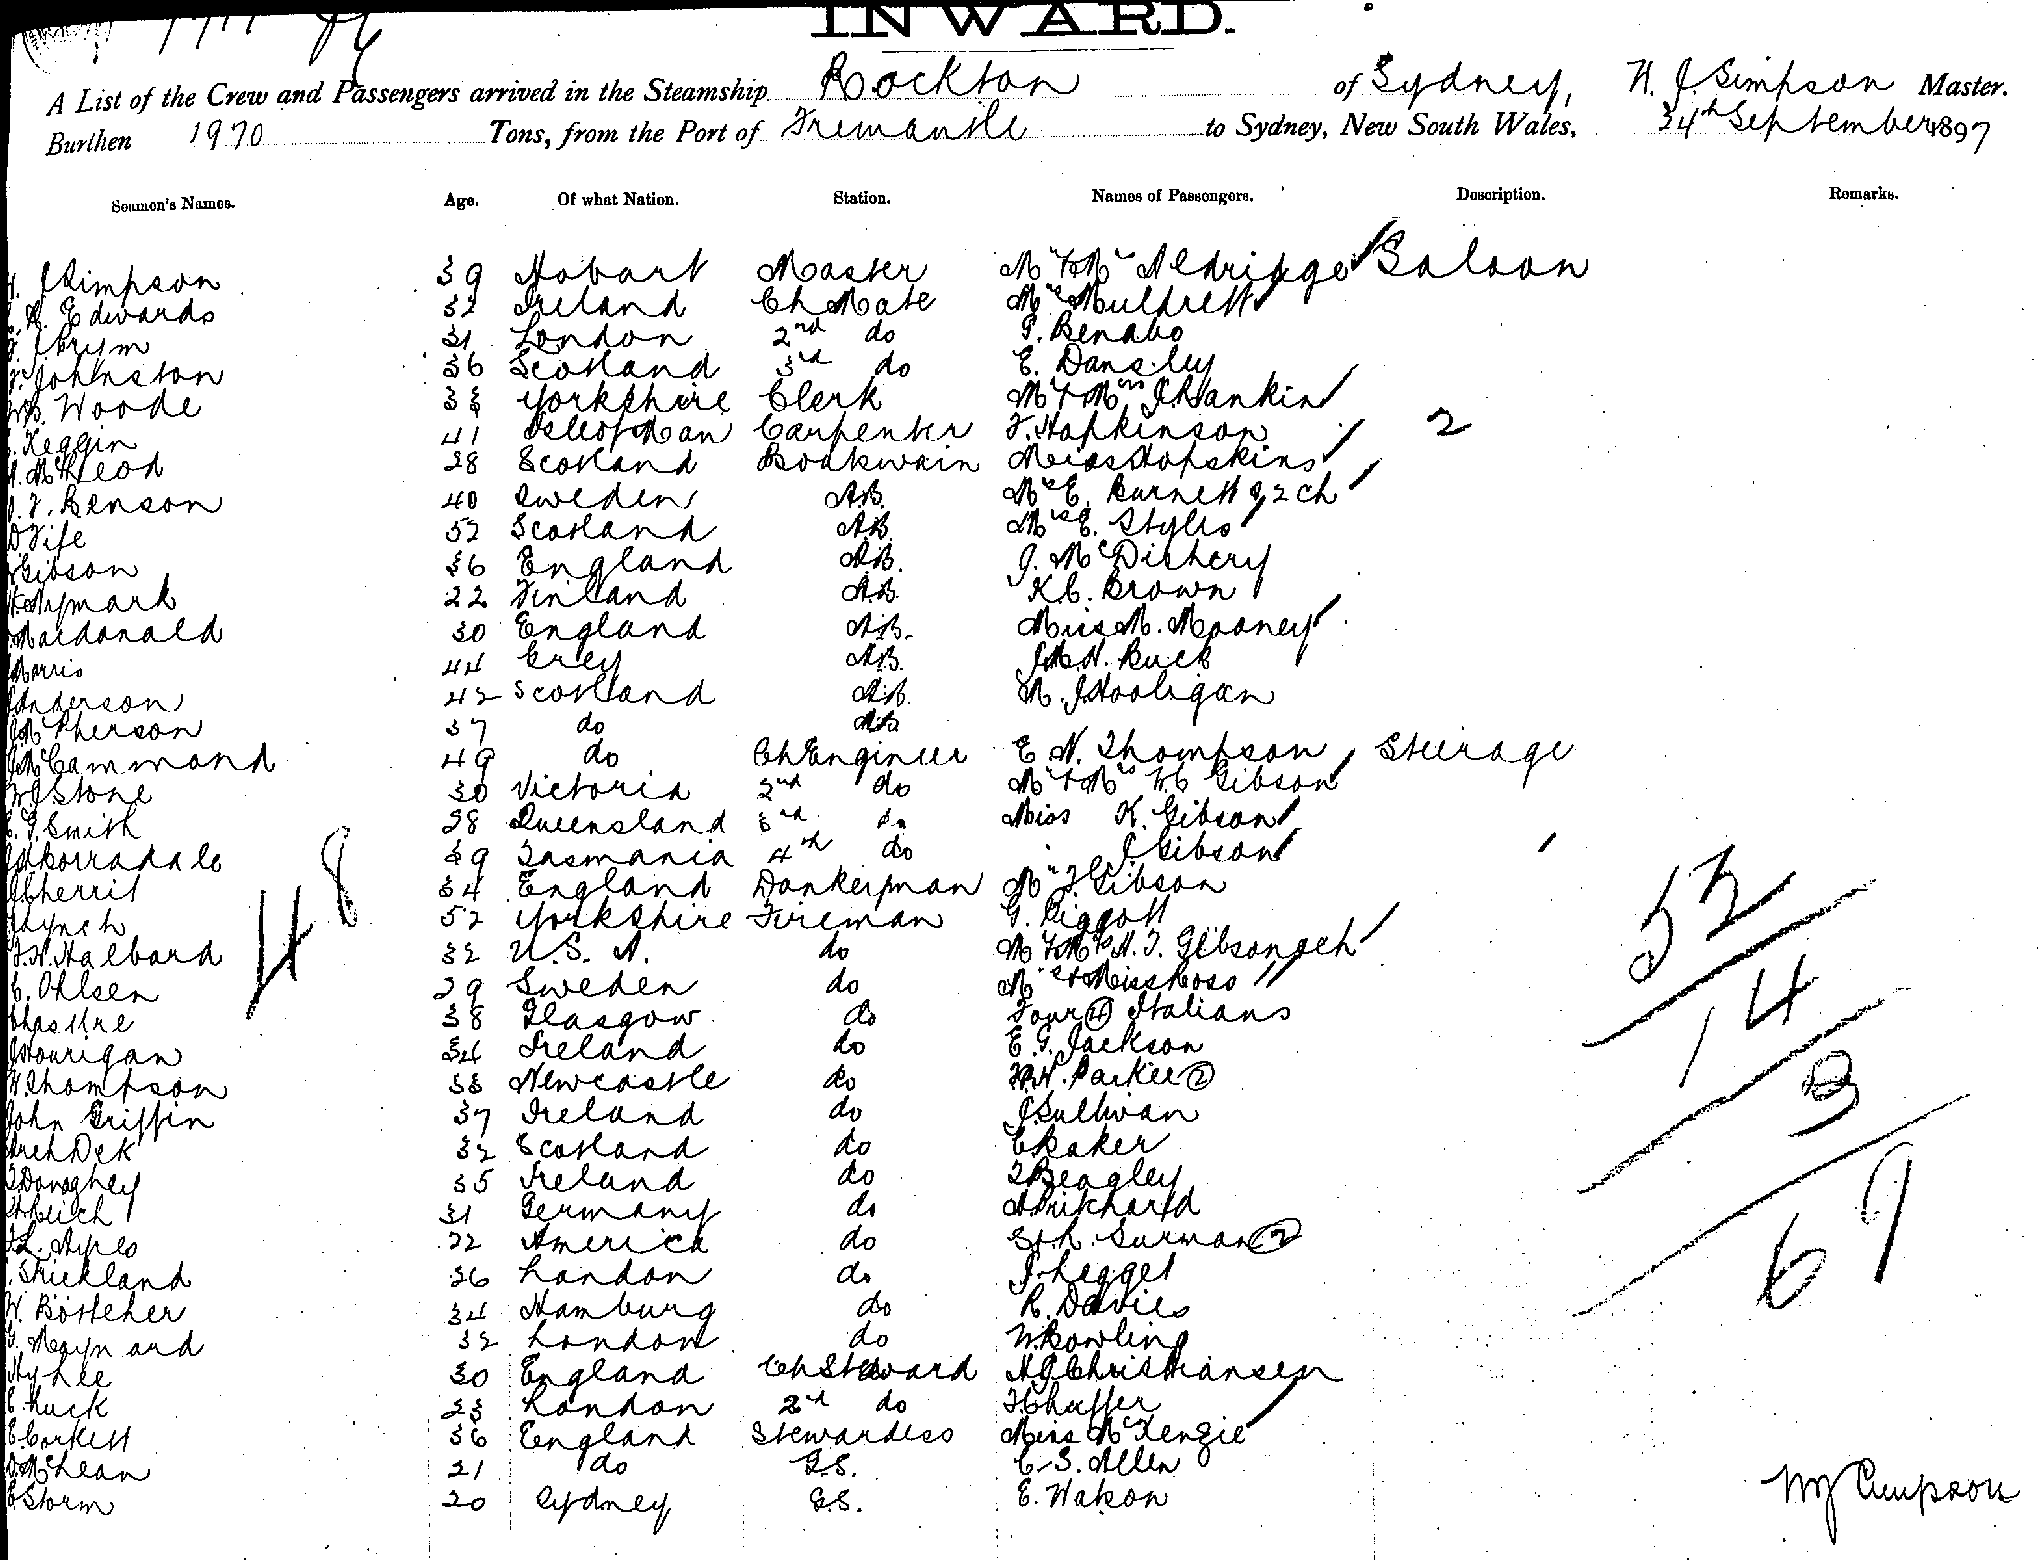 INWARD.
A List of the Crew and Passengers arrived in the Steamship Rockton of Sydney, H. J. Simpson Master.
Burthen 1970 Tons, from the Port of Fremantle to Sydney, New South Wales, 24th September 1897
Seamen's Names. Age. Of what Nation. Station. Names of Passengers. Description. Remarks.
J Simpson 39 Hobart Master Mr & Mrs Aldridge Saloon
Edwards 32 Ireland Ch Mate Mrs Muldrett
Prym 31 London 2nd do P. Benabo
Johnston 36 Scotland 3rd do E. Dansley
Woode 33 Yorkshire Clerk Mr & Mrs J Rankin
Keggin 41 Isle of Man Carpenter F. Hopkinson 2
McLeod 28 Scotland Boatswain Miss Hopskins
Benson 40 Sweden AB. Mrs E. Burnett & 2 ch
D Fife 52 Scotland AB. Mrs E. Styles
Gibson 36 England AB. J. McDishery
Nymark 22 Finland AB. K. C. Brown
Macdonald 30 England AB. Miss M. Mooney
Morris 44 Grey AB. Buck
Anderson 42 Scotland AB. M. J Hooligan
McPherson 37 do AB
McCammond 49 do Ch Engineer E. N. Thompson Steerage
Stone 30 Victoria 2nd do Mr & Mrs W C Gibson
Smith 28 Queensland 3rd do Miss K. Gibson
Skorradale 39 Tasmania 4th do " J Gibson
Cherrit 34 England Donkeyman Mr Gibson
Lynch 52 Yorkshire Fireman G. Piggott
Halbard 32 U.S. A. do Mr & Mrs H. T. Gibson & ch
C. Ohlsen 29 Sweden do Mrs & Miss Ross
38 Glasgow do Four (4) Italians
Hourigan 34 Ireland do E. G. Jackson
Thompson 33 Newcastle do Parker (2)
John Griffin 37 Ireland do J Sullivan
Arch Dek 32 Scotland do C Baker
Donaghey 35 Ireland do T Beagley
Leich 31 Germany do A Pritchard
L. Ayres 22 America do S & A. Surman (2)
Strickland 26 London do J. Legget
W. Böttcher 34 Hamburg do R. Davies
G. Maynard 32 London do W. Bowling
Hyhle 30 England Ch Steward A J Christiansen
C. Huck 23 London 2nd do
E. Corkett 36 England Stewardess Miss McKenzie
D. McLean 21 do G.S. C. S. Allen
E Storm 20 Sydney G.S. E. Watson
48
53
14
3
67
Simpson